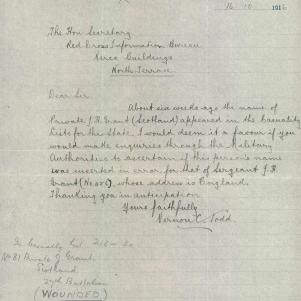 16 10 1916
The Hon Secretary
Red Cross Information Bureau
Verco Buildings
North Terrace
Dear Sir
About six weeks ago the name of
Private J. R. Grant (Scotland) appeared in the Casualty
Lists for the State. I would deem it a favour if you
would make enquiries through the Military
Authorities to ascertain if this person's name
was inserted in error for that of Sergeant J. R.
Grant (No                ), whose address is England.
Thanking you in anticipation
Yours faithfully
Vernon C. Todd
In Casualty List
No 81 Private J. Grant
Scotland
27th Battalion
(WOUNDED)